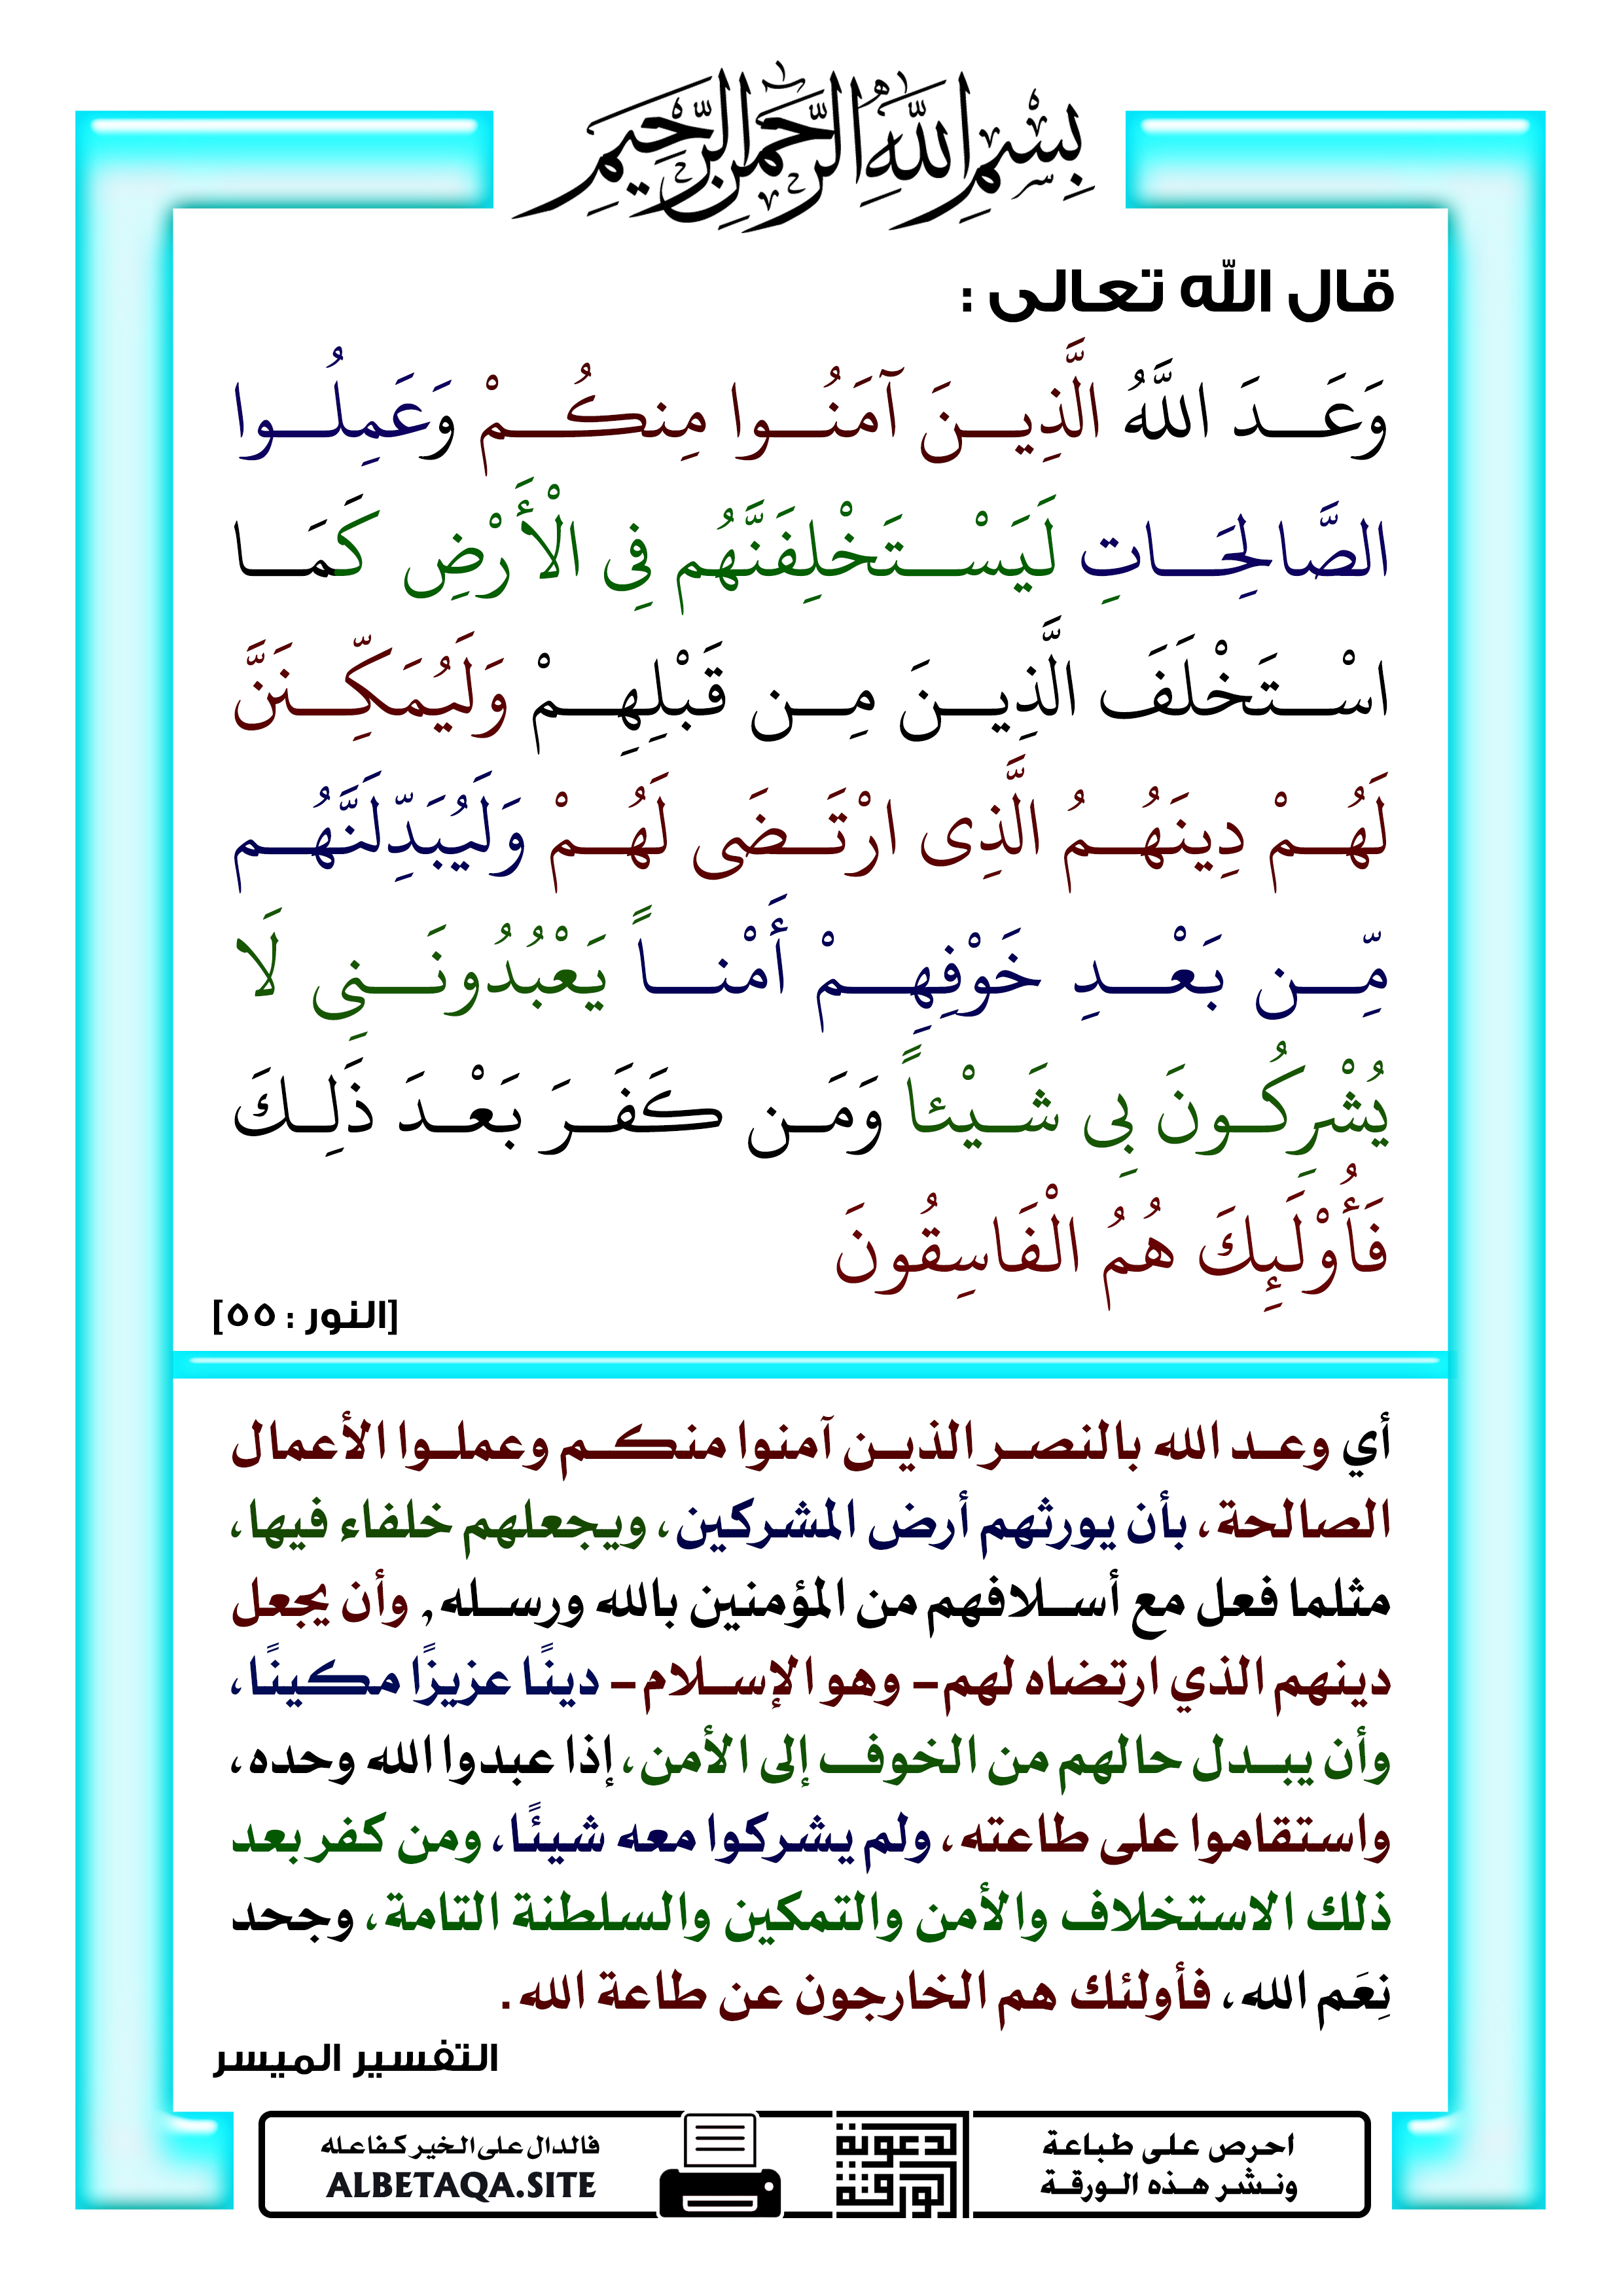 بِسْمِ اللَّهِ الرَّحْمَٰنِ الرَّحِيمِ
قال الله تعالى :
وَعَدَ اللَّهُ الَّذِينَ آمَنُوا مِنكُمْ وَعَمِلُوا
الصَّالِحَاتِ لَيَسْتَخْلِفَنَّهُم فِى الْأَرْضِ كَمَا
اسْتَخْلَفَ الَّذِينَ مِن قَبْلِهِمْ وَلَيُمَكِّنَنَّ
لَهُمْ دِينَهُمُ الَّذِى ارْتَضَى لَهُمْ وَلَيُبَدِّلَنَّهُم
مِّن بَعْدِ خَوْفِهِمْ أَمْناً يَعْبُدُونَنِى لَا
يُشْرِكُونَ بِى شَيْئاً وَمَن كَفَرَ بَعْدَ ذَلِكَ
فَأُوْلَئِكَ هُمُ الْفَاسِقُونَ
[النور : ٥٥]
أي وعد الله بالنصر الذين آمنوا منكم وعملوا الأعمال
الصالحة، بأن يورثهم أرض المشركين، ويجعلهم خلفاء فيها،
مثلما فعل مع أسلافهم من المؤمنين بالله ورسله, وأن يجعل
دينهم الذي ارتضاه لهم- وهو الإسلام- دينًا عزيزًا مكينًا،
وأن يبدل حالهم من الخوف إلى الأمن، إذا عبدوا الله وحده،
واستقاموا على طاعته، ولم يشركوا معه شيئًا، ومن كفر بعد
ذلك الاستخلاف والأمن والتمكين والسلطنة التامة، وجحد
نِعَم الله، فأولئك هم الخارجون عن طاعة الله.
التفسير الميسر
احرص على طباعة
ونشر هذه الورقة
الدعوية
الورقة
فالدال على الخير كفاعله
ALBETAQA.SITE